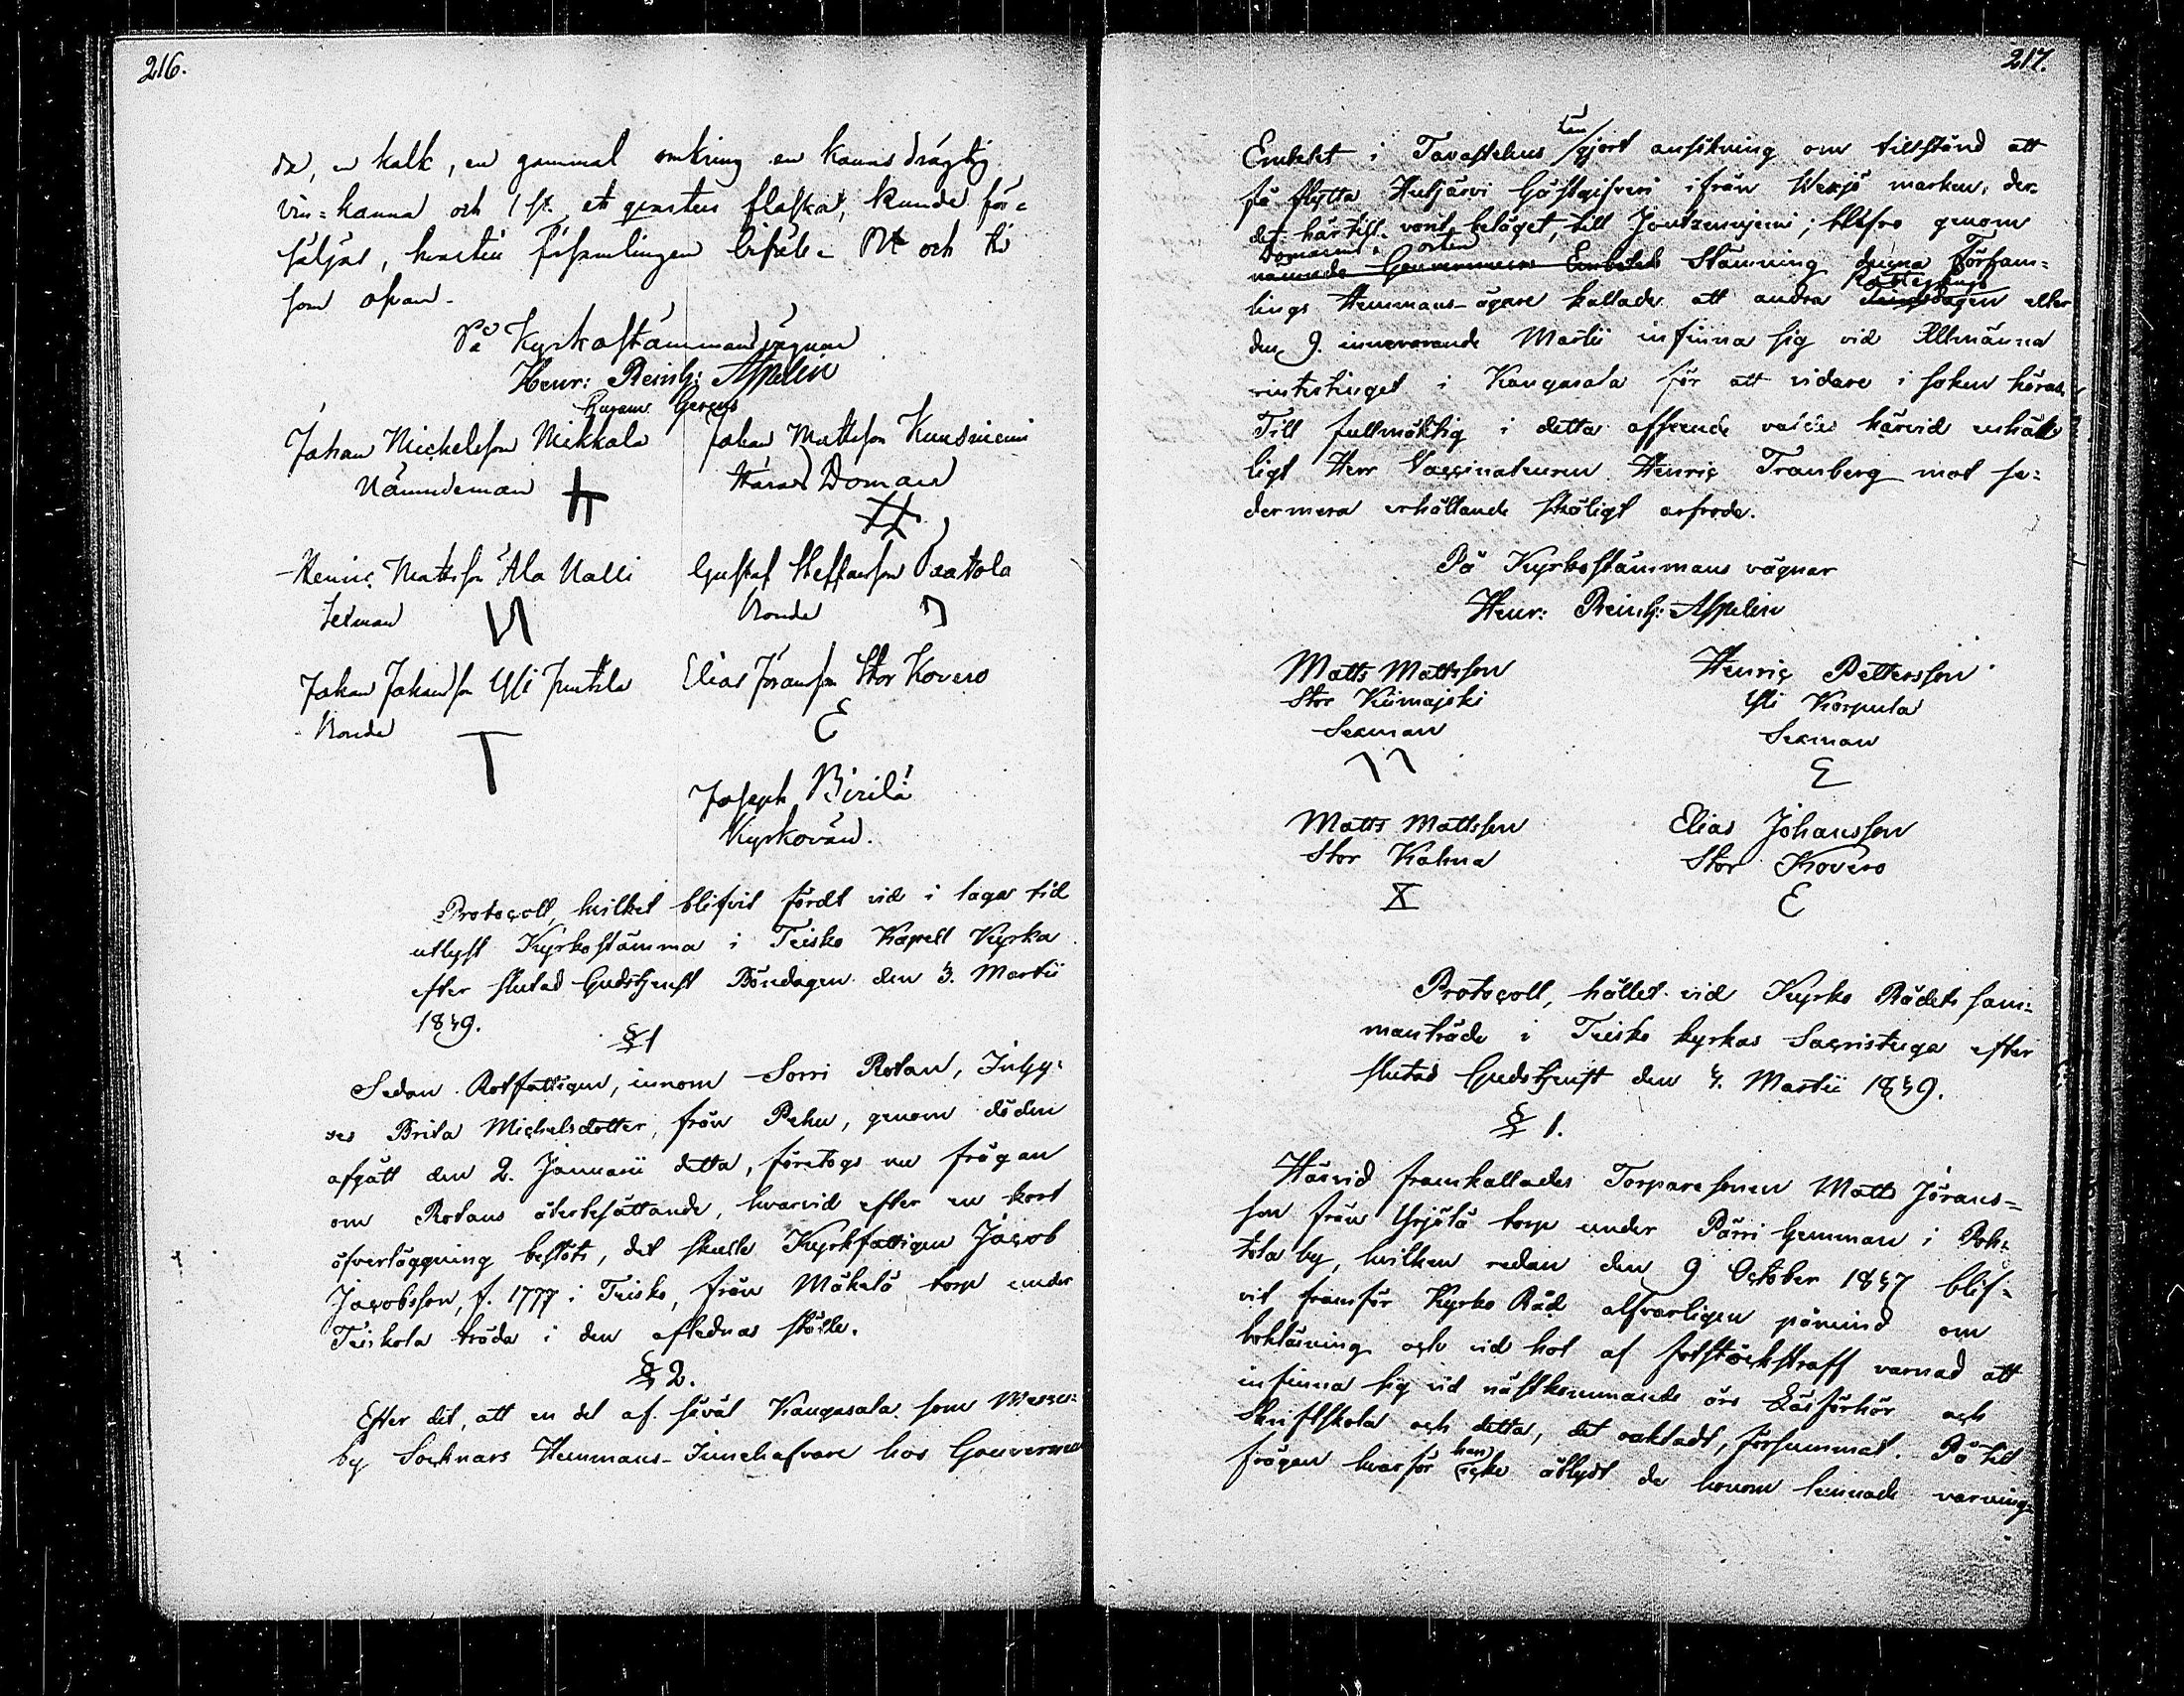 216.
de, en kalk, en gammal omkring en kanns drägtig
vin-kanna och 1 st. ett qvarters flaska, kunde för-
säljas, hvartill församlingen biföll. Ut och
som ofvan.
På Kyrkostämmans vägnar
Henr: Reinh: Aspelin
Johan Michelsson Mikkola
Nämndeman
Johan Mattsson Kuusniemi
Härads Domare
Henric Mattsson Ala Nalli
Sexman
Gustaf Steffansson Paatola
Bonde
Johan Johansson Yli Juutila
Bonde
Elias Joransson Stor Kovero
E
Joseph Birilä
Kyrkovärd.
Protocoll, hvilket blifvit fördt vid i laga tid
utlyst Kyrkostämma i Teisko Kapell Kyrka
efter slutad Gudstjenst Böndagen den 3. Martii
1849.
§ 1
Sedan Rotfattigen, innom Sorri Rotan, Inhy-
ses Brita Michelsdotter, från Pehu, genom döden
afgått den 2. Januarii detta, företogs nu frågan
om Rotans återbesättande, hvarvid efter en kort
öfverläggning beslöts, det skulle Kyrkfattigen Jacob
Jacobsson, f. 1777 i Teisko, från Mäkelä torp under
Teiskola träda i den aflednas ställe.
§ 2.
Efter det, att en del af såväl Kangasala som Messu-
by Socknars Hemmans-Innehafvare hos Gouvernem
217.
Embetet i Tavastehus län gjort ansökning om tillstånd att
få flytta Huljärvi Gästgifveri ifrån Wexjö marken, der-
det härtill varit beläget, till Joutzenniemi; blefvo genom
Domarens i orten
nämnde Gouvernem Embetets Stämning denna Försam-
lings Hemmans-ägare kallade att andra Rättegångs dagen eller
den 9. innevarande Martii infinna sig vid Allmänna
vintertinget i Kangasala för att vidare i saken höras.
Till fullmäktig i detta affseende valdes härvid enhäl-
ligt Herr Vaccinateuren Henric Tranberg mot se-
dermera erhållande skäligt arfvode.
På Kyrkostämmans vägnar
Henr: Reinh: Aspelin
Matts Mattsson
Stor Kiimajoki
Sexman
Henric Pettersson
Yli Korpula
Sexman
E
Matts Mattsson
Stor Kahna
X
Elias Johansson
Stor Kovero
E
Protocoll, hållet vid Kyrko Rådets sam-
manträde i Teisko kyrkas Sacristuga efter
slutad Gudstjenst den 4. Martii 1849.
§ 1.
Härvid framkallades Torparesonen Matts Jörans-
son från Yrjölä torp under Pärri hemman i Poh-
tola by, hvilken redan den 9 October 1847 blif-
vit framför Kyrko Råd alfvarligen påmind om
bokläsning och vid hot af fotstockstraff varnad att
infinna sig vid nästkommande års Läsförhör och
Skriftskola och detta, det oaktadt, försummat. På till
frågan hvarför han icke åtlydt de honom lemnade varning-